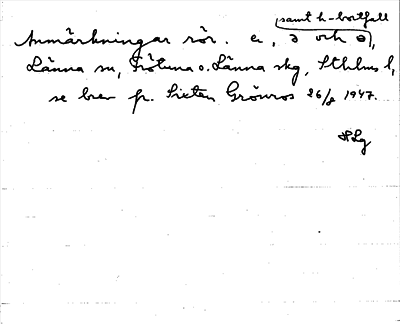 samt h-bortfall
Anmärkningar rör. e, ə och ɵ,
Länna sn, Frötuna o. Länna skg, Sthlms l,
se brev fr. Sixten Grönros 26/8 1947.
HLg